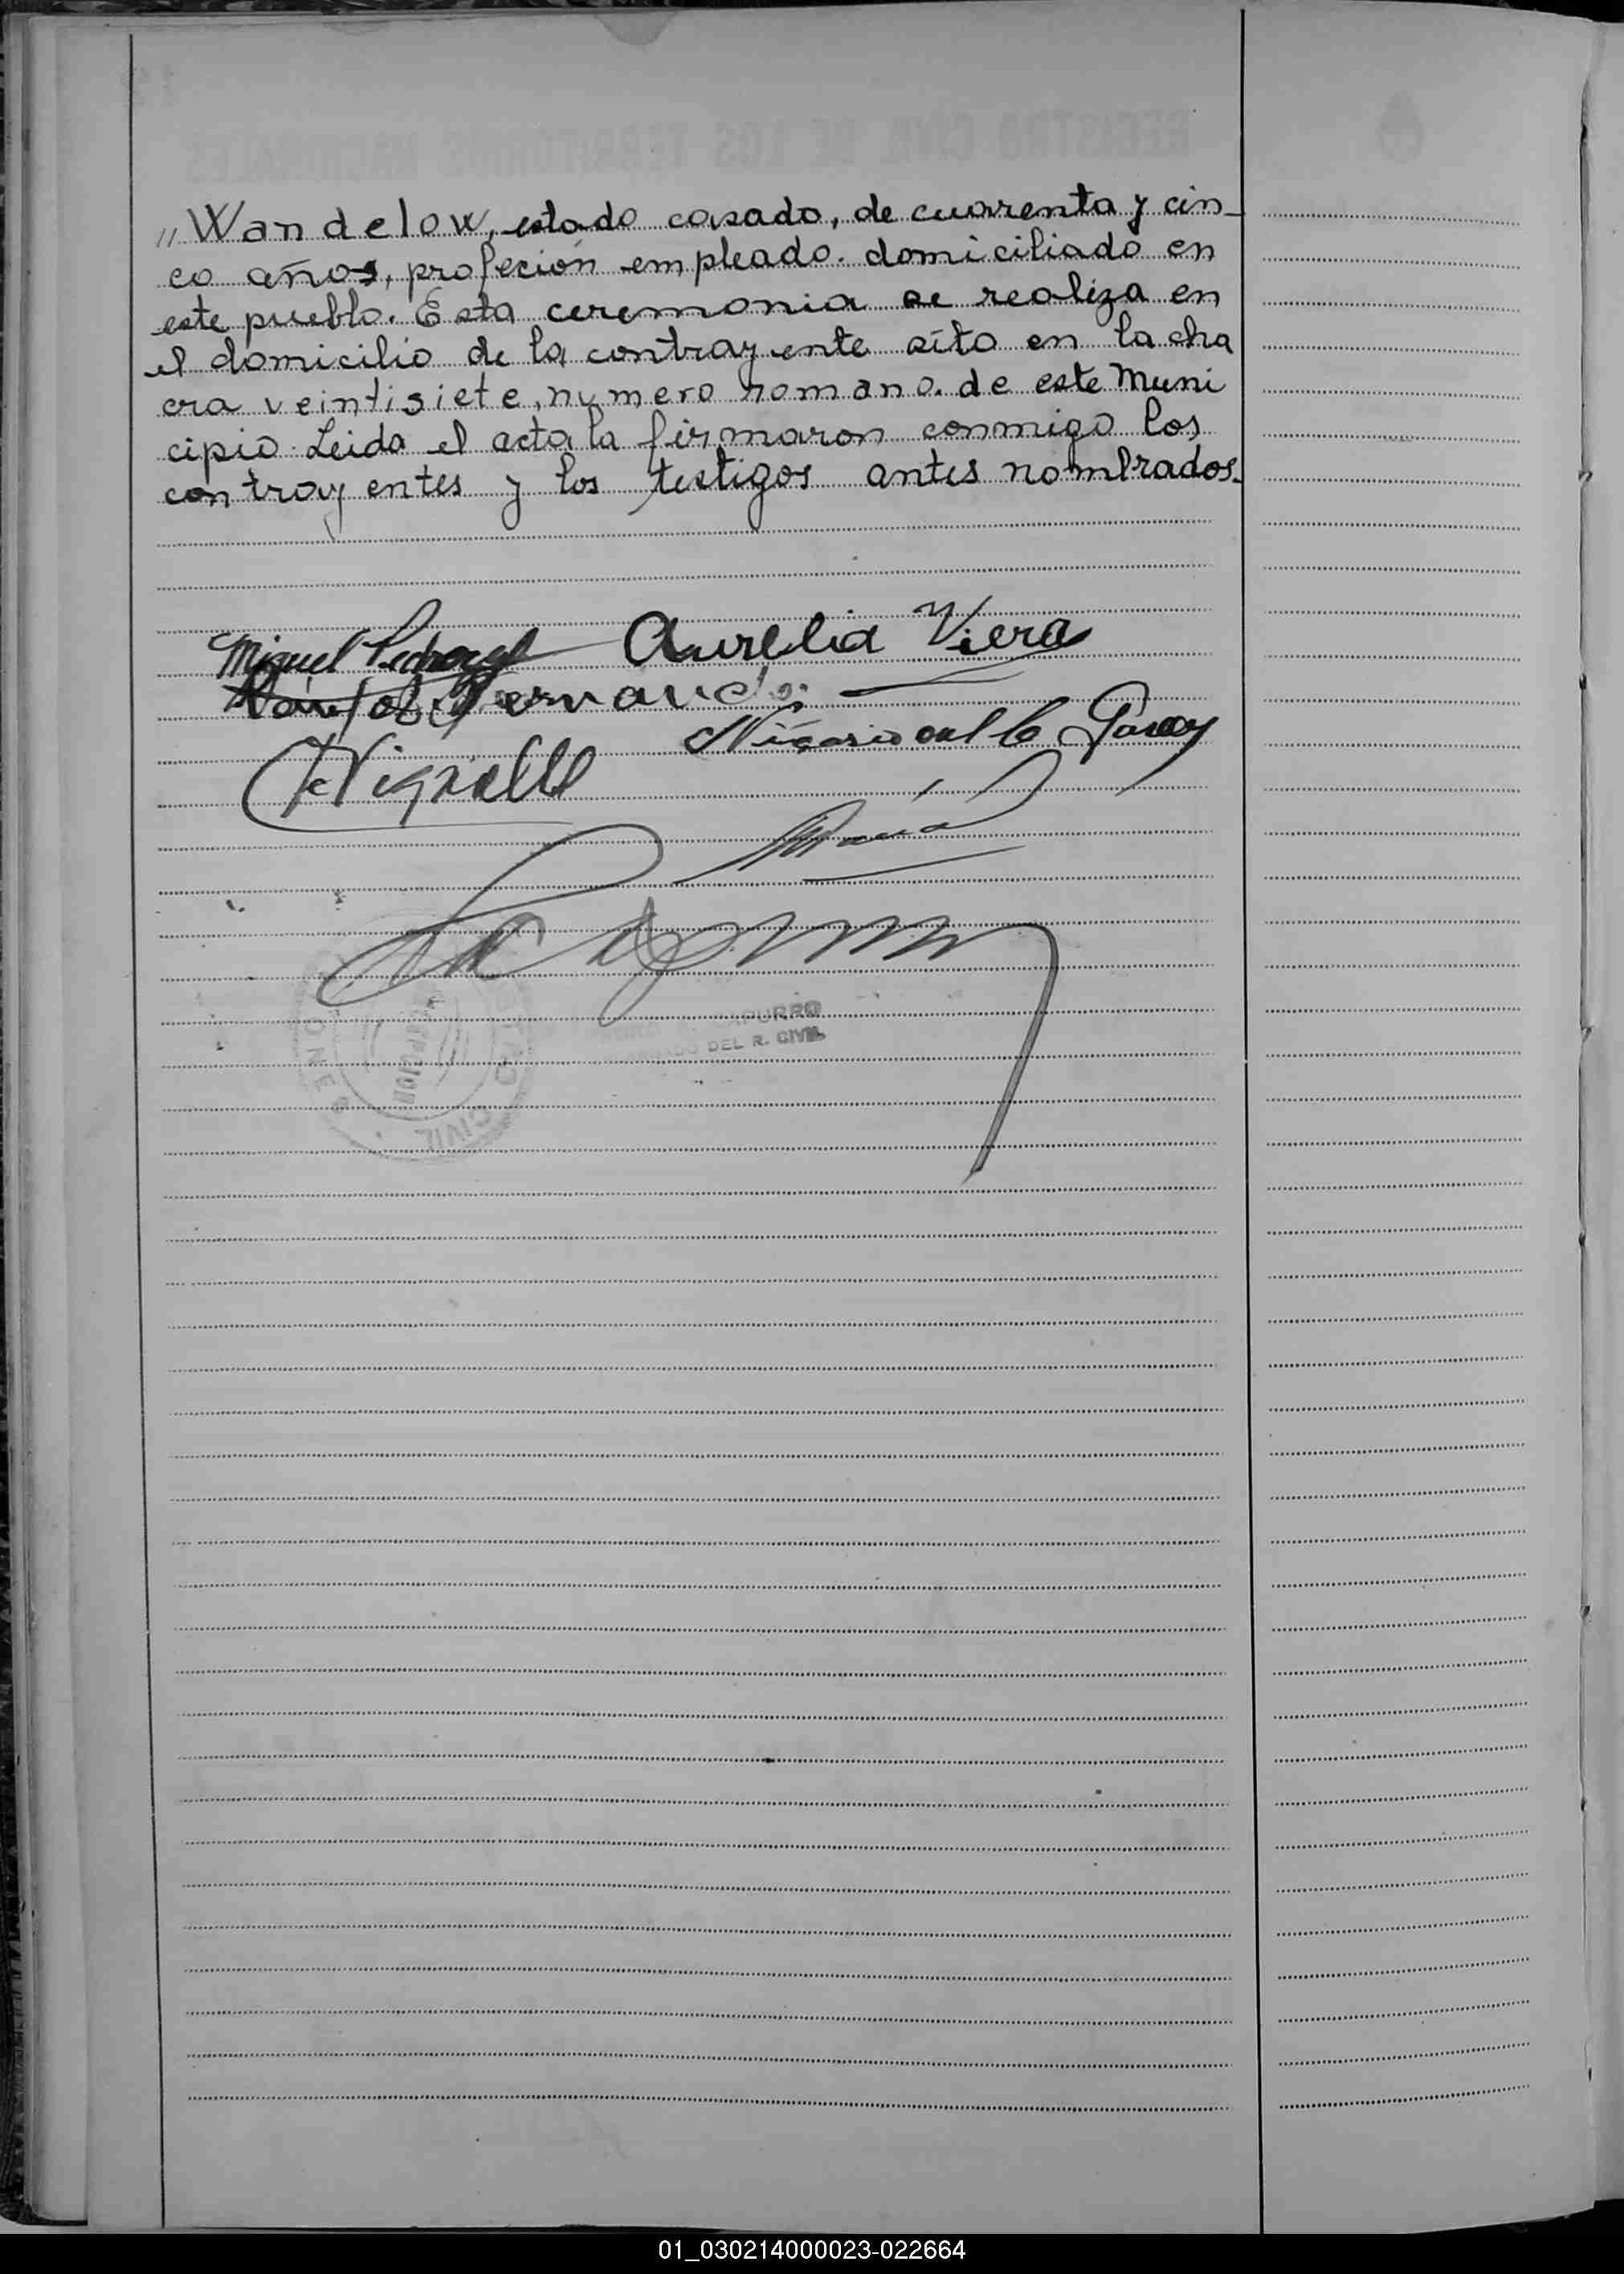 ,, Wandelow, estado casado, de cuarenta y cin-
co años, profeción empleado. domiciliado en
este pueblo. Esta ceremonia se realiza en
el domicilio de la contrayente sito en la cha
cra veintisiete, numero romano. de este Muni
cipio. Leida el acta la firmaron conmigo los
contrayentes y los testigos antes nombrados.
Miguel Aurelia Viera
Nicasio
CAPURRO
DEL R. CIVIL
CIVIL
01_030214000023-022664